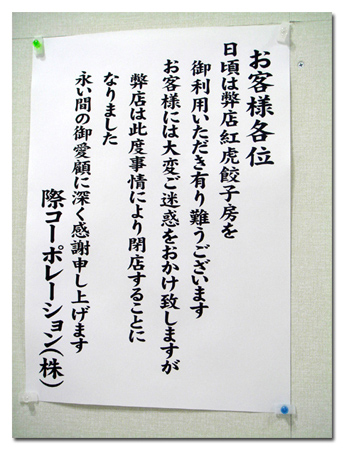 お客様各位
日頃は弊店紅虎餃子房を
御利用いただき有り難うございます
お客様には大変ご迷惑をおかけ致しますが
弊店は此度事情により閉店することに
なりました
永い間の御愛顧に深く感謝申し上げます
際コーポレーション(株)